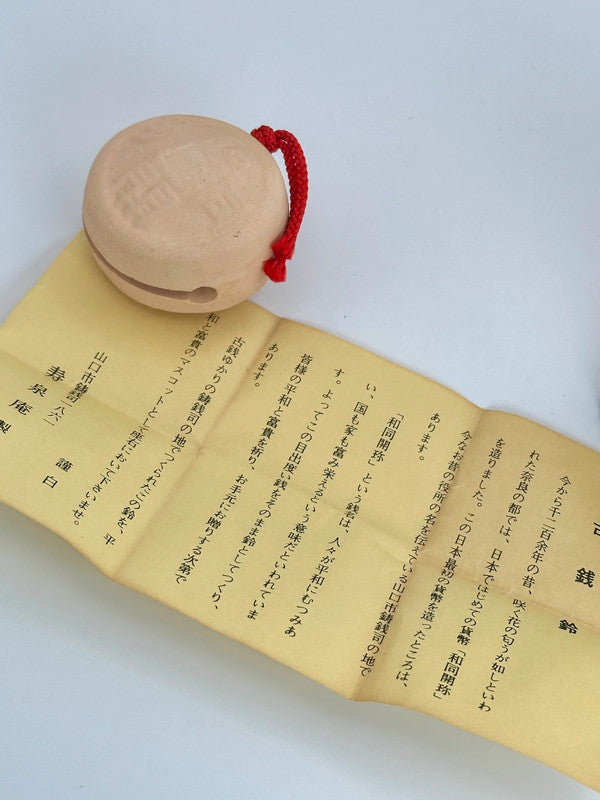 古銭鈴
今から千二百余年の昔、咲く花の匂うが如しといわ
れた奈良の都では、日本ではじめての貨幣「和同開珎」
を造りました。この日本最初の貨幣を造ったところは、
今なお昔の役所の名を伝えている山口市鋳銭司の地で
あります。
「和同開珎」という銭名は、人々が平和にむつみあ
い、国も家も富み栄えるという意味だといわれていま
す。よってこの目出度い銭をそのまま鈴としてつくり、
皆様の平和と富貴を祈り、お手元にお贈りする次第で
あります。
古銭ゆかりの鋳銭司の地でつくられたこの鈴を、平
和と富貴のマスコットとして座右において下さいませ。
謹白
山口市鋳
寿泉庵製